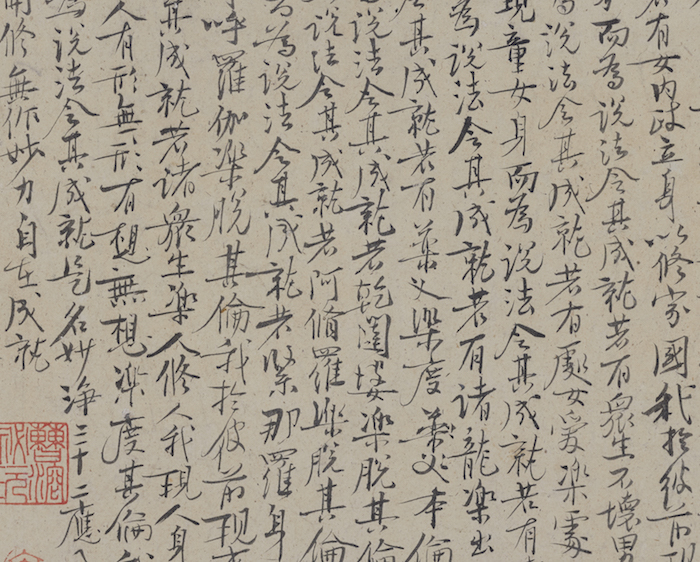 若有女內政立身以修家國我於彼前現
而為說法令其成就若有眾生不壞男
說法令其成就若有處女愛樂處
現童女身而為說法令其成就若有
為說法令其成就若有諸龍樂出
其成就若有藥叉樂度藥叉本倫
說法令其成就若乾闥婆樂脫其倫
說法令其成就若阿脩羅樂脫其倫
為說法令其成就若緊那羅身
呼羅伽樂脫其倫我於彼前現
其成就若諸眾生樂人修人我現人身
人有形無形有想無想樂度其倫我
為說法令其成就是名妙淨三十二應入
聞修無作妙力自在成就